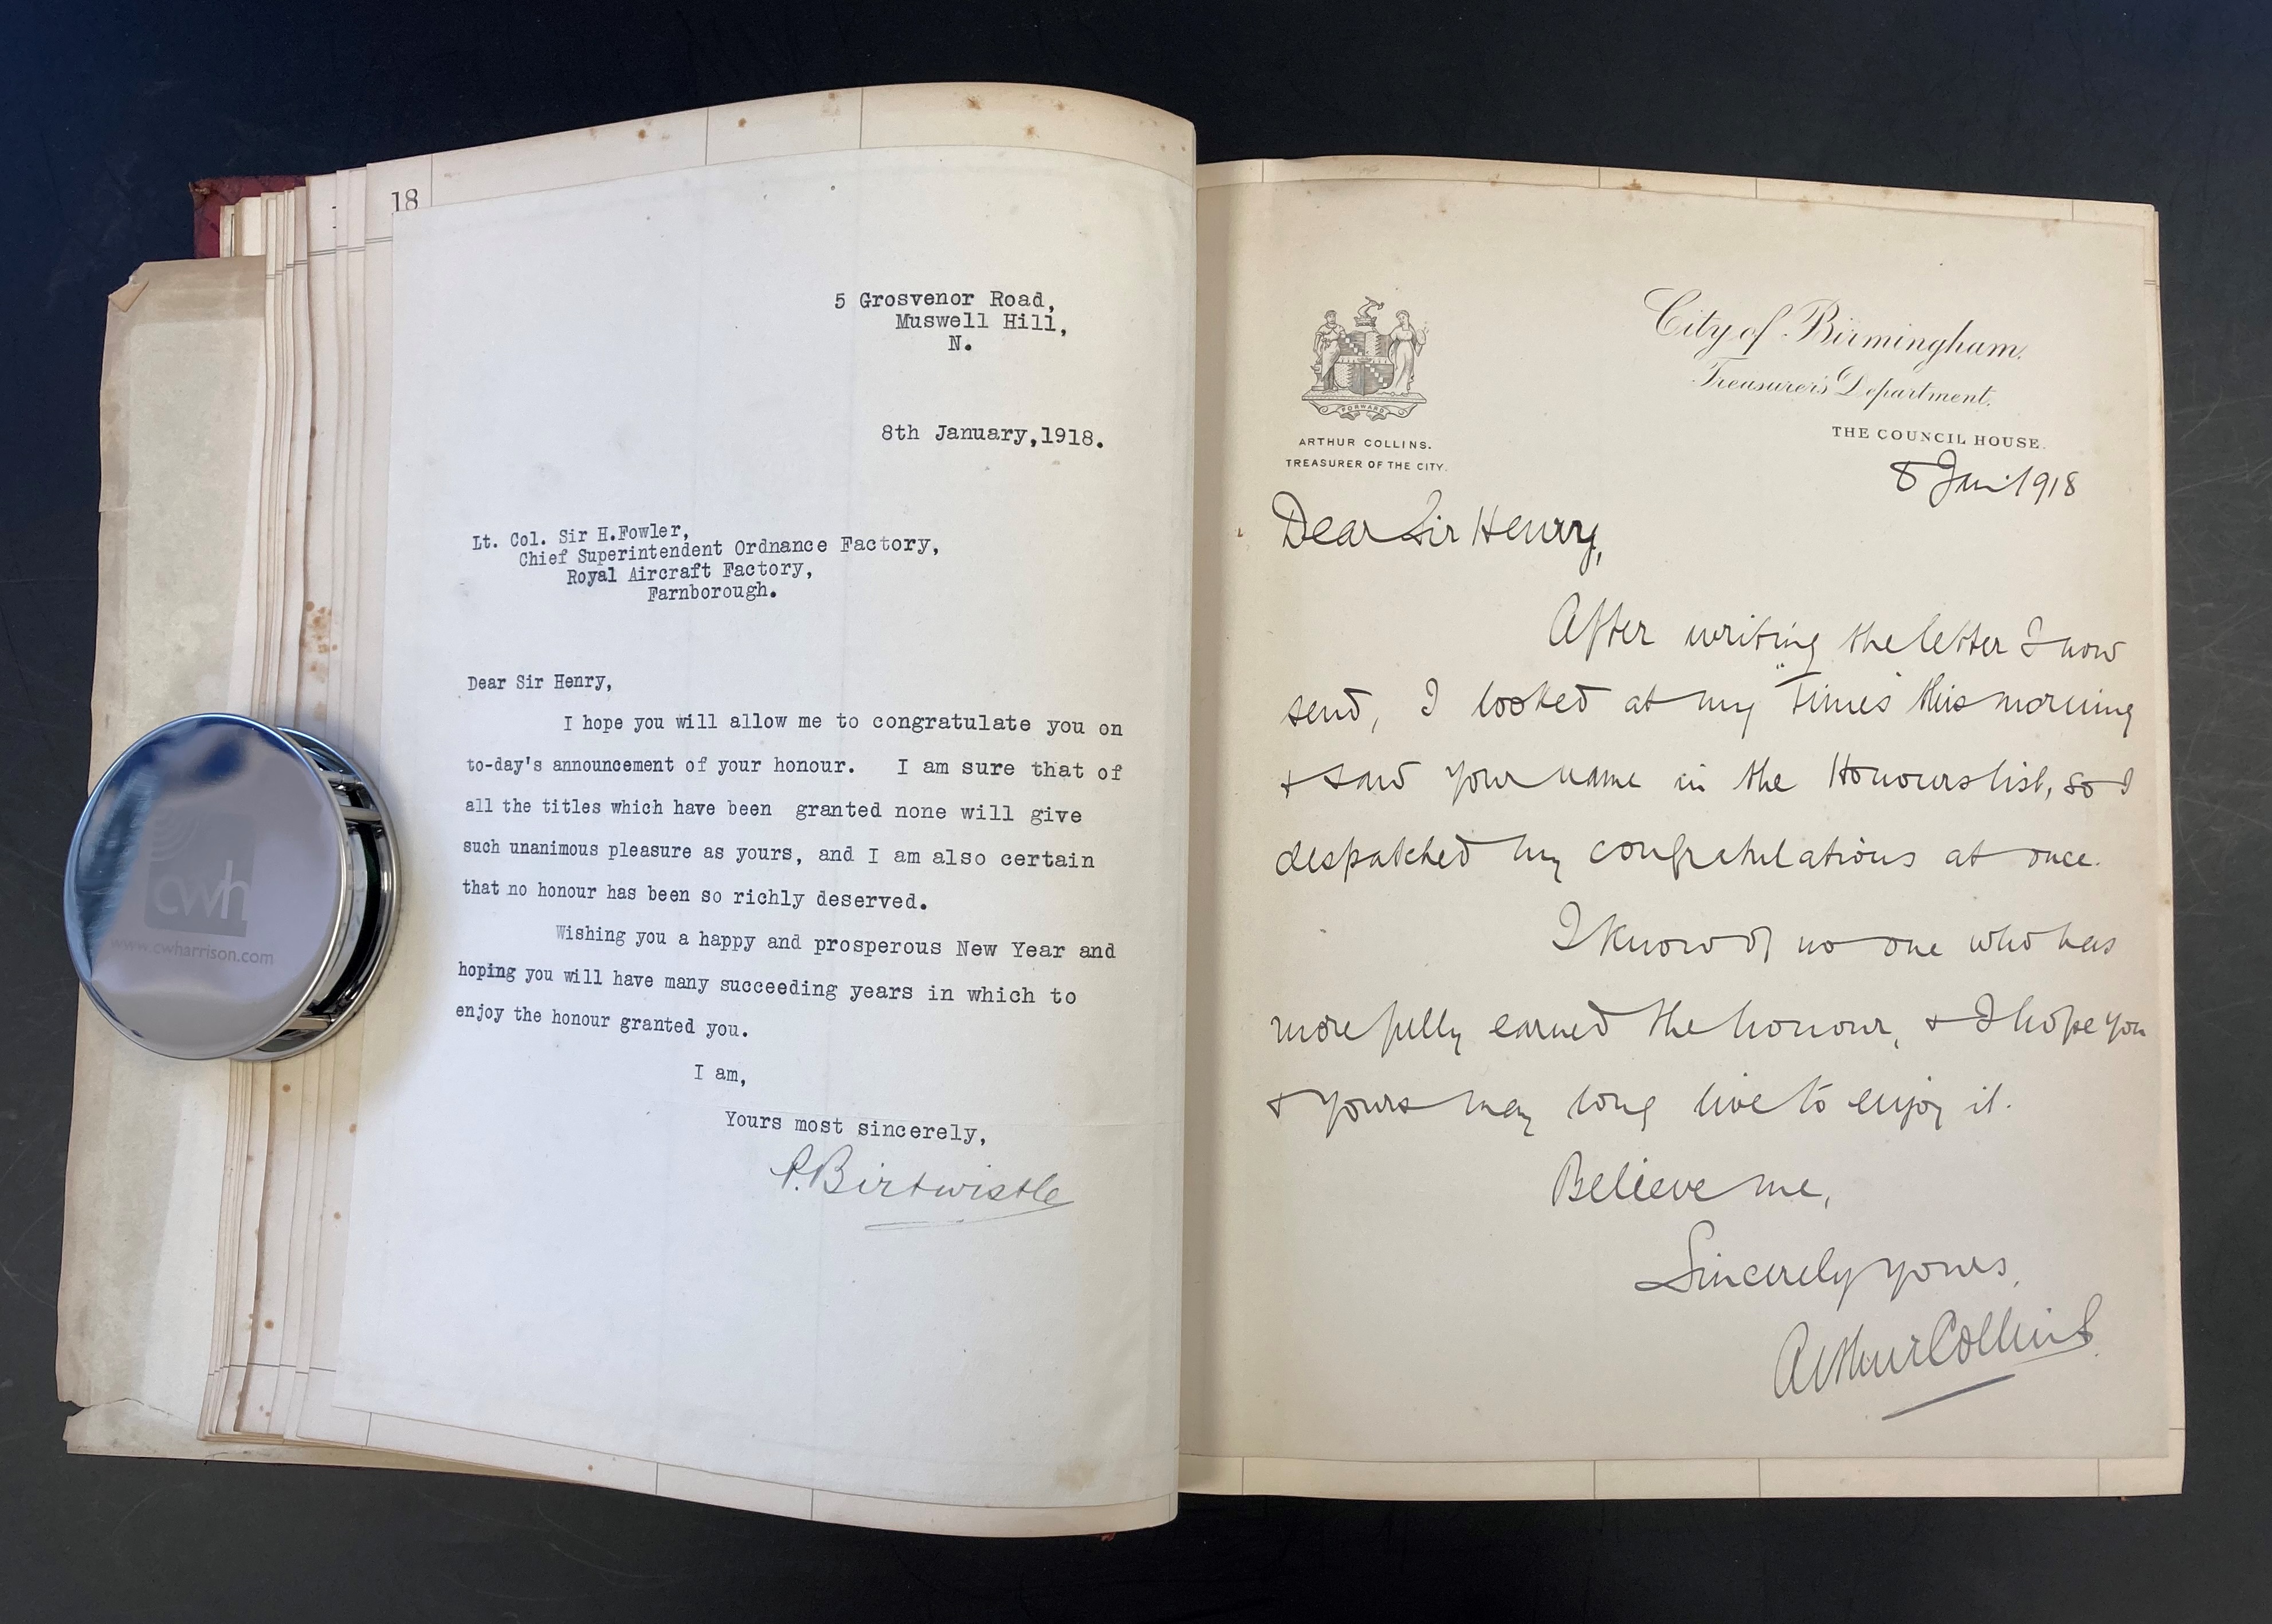 18
5 Grosvenor Road,
Muswell Hill,
N.
8th January,1918.
Lt. Col. Sir H.Fowler,
Chief Superintendent Ordnance Factory,
Royal Aircraft Factory,
Farnborough.
Dear Sir Henry,
I hope you will allow me to congratulate you on
to-day's announcement of your honour. I am sure that of
all the titles which have been granted none will give
such unanimous pleasure as yours, and I am also certain
that no honour has been so richly deserved.
Wishing you a happy and prosperous New Year and
hoping you will have many succeeding years in which to
enjoy the honour granted you.
I am,
Yours most sincerely,
P. Birtwistle
cwh
www.cwharrison.com
FORWARD
ARTHUR COLLINS.
TREASURER OF THE CITY.
City of Birmingham.
Treasurer's Department.
THE COUNCIL HOUSE.
8 Jan. 1918
Dear Sir Henry,
After writing the letter I now
send, I looked at my "Times" this morning
& saw your name in the Honours list, so I
despatched my congratulations at once.
I know of no one who has
more fully earned the honour, & I hope you
& yours may long live to enjoy it.
Believe me,
Sincerely yours,
Arthur Collins